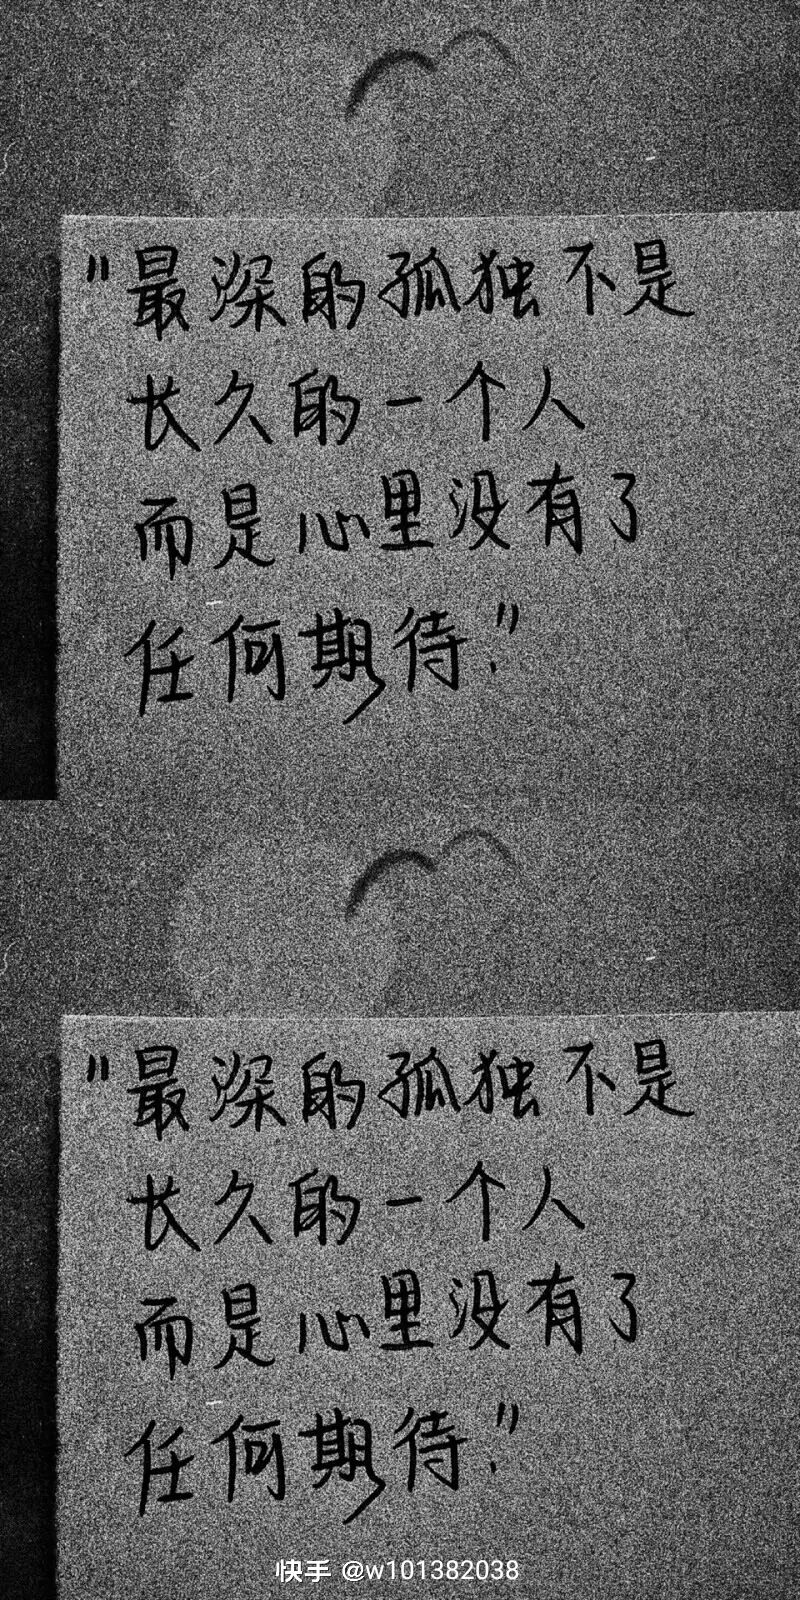 "最深的孤独不是
长久的一个人
而是心里没有了
任何期待."
"最深的孤独不是
长久的一个人
而是心里没有了
任何期待."
快手 @w101382038